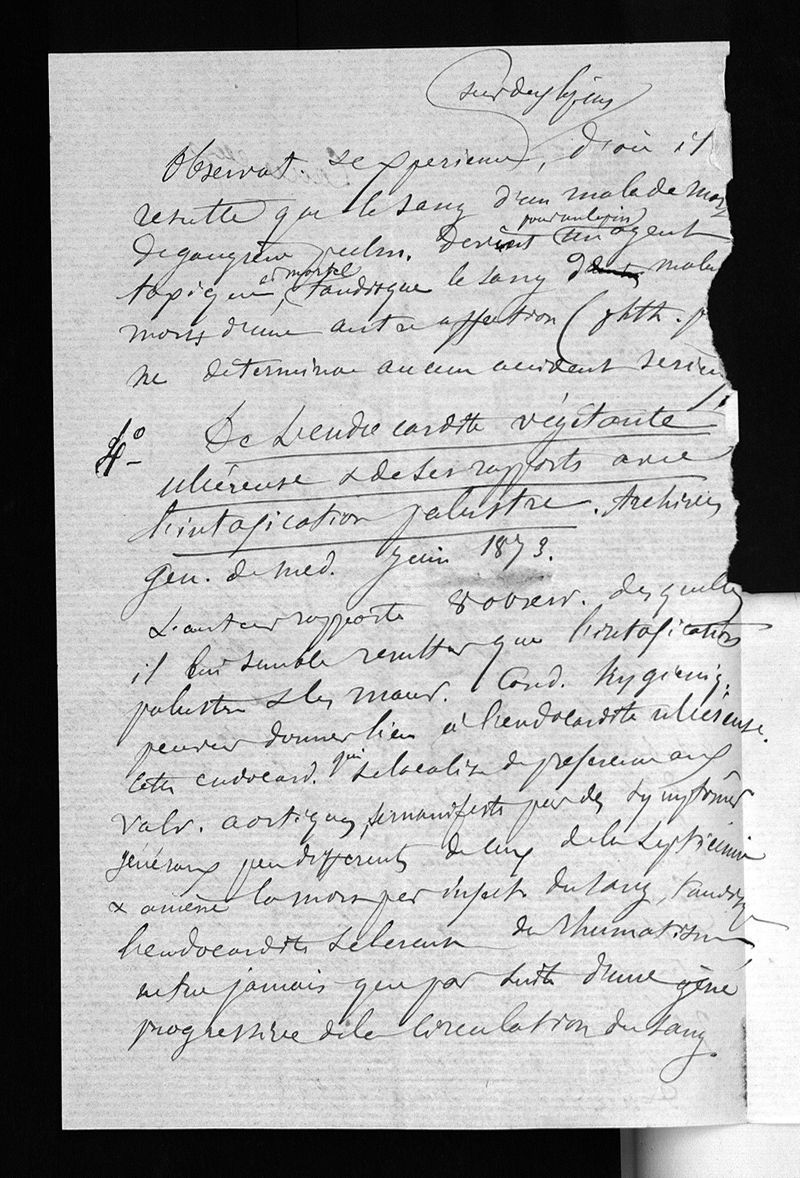 sur des lapins
Observat. & experience, d'où il
resulte que le sang d'un malade mort
de gangrène pulm. devient pour un lapin un agent
toxique et mortel, tandis que le sang de malad
morts d'une autre affection (phth. p
ne determine aucun accident serieux
4° De L'endocardite végétante
ulcéreuse & de ses rapports avec
l'intoxication palustre. Archives
gen. de med. Juin 1873.
L'auteur rapporte 8 observ. desquelles
il lui semble resulter que l'intoxication
palustre & les mauv. Cond. hygieniq.
peuvent donner lieu à l'endocardite ulcéreuse.
Cette endocard. qui se localise de preference aux
valv. aortiques, se manifeste par des symptômes
généraux peu differents de ceux de la septicémie
& amène la mort par infect. du sang, tandis que
l'endocardite du rhumatisme
ne tue jamais que par suite d'une gêne
progressive de la Circulation du sang.